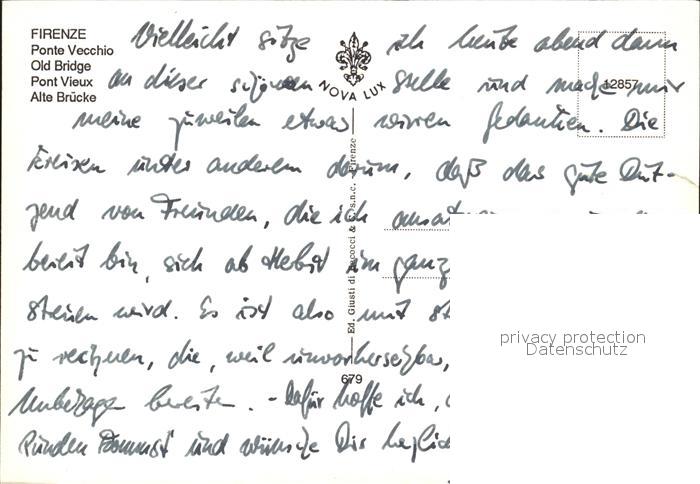 FIRENZE
Ponte Vecchio
Old Bridge
Pont Vieux
Alte Brücke
NOVA LUX
12857
Vielleicht sitze ich heute abend dann
an dieser schönen Stelle und mache mir
meine zuweilen etwas wirren Gedanken. Die
kreisen unter anderem darum, daß das gute Dut-
zend von Freunden, die ich
bereit bin, sich ab Herbst im ganz
streuen wird. Es ist also mit
zu rechnen, die, weil unvorhersehbar,
Unbehagen bereiten. - Dafür hoffe ich,
Runden kommst und wünsche Dir herzlich
Ed. Giusti di Becocci & C. s.n.c. - Firenze
679
privacy protection
Datenschutz